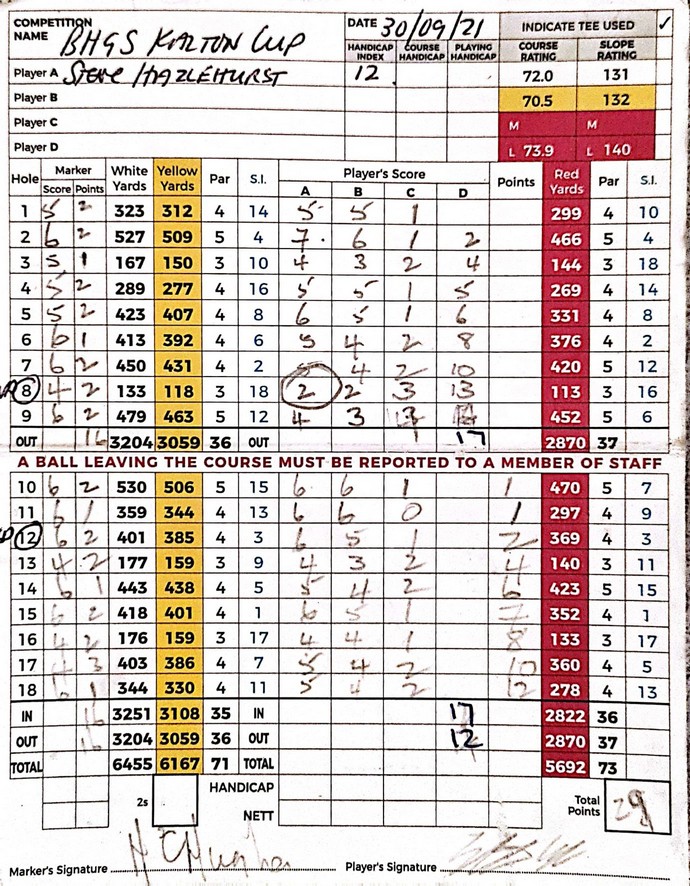 COMPETITION NAME BHGS KORLTON CUP DATE 30/09/21 INDICATE TEE USED ✓
HANDICAP INDEX COURSE HANDICAP PLAYING HANDICAP COURSE RATING SLOPE RATING
Player A STEVE HAZLEHURST 12 72.0 131
Player B 70.5 132
Player C M M
Player D L 73.9 L 140
Hole Marker White Yards Yellow Yards Par S.I. Player's Score Points Red Yards Par S.I.
Score Points A B C D
1 5 2 323 312 4 14 5 5 1 299 4 10
2 6 2 527 509 5 4 7 6 1 2 466 5 4
3 5 1 167 150 3 10 4 3 2 4 144 3 18
4 5 2 289 277 4 16 5 5 1 5 269 4 14
5 5 2 423 407 4 8 6 5 1 6 331 4 8
6 6 1 413 392 4 6 5 4 2 8 376 4 2
7 6 2 450 431 4 2 4 2 10 420 5 12
8 4 2 133 118 3 18 2 2 3 13 113 3 16
9 6 2 479 463 5 12 4 3 452 5 6
OUT 16 3204 3059 36 OUT 17 2870 37
A BALL LEAVING THE COURSE MUST BE REPORTED TO A MEMBER OF STAFF
10 6 2 530 506 5 15 6 6 1 1 470 5 7
11 6 1 359 344 4 13 6 6 0 1 297 4 9
12 6 2 401 385 4 3 6 5 1 2 369 4 3
13 4 2 177 159 3 9 4 3 2 4 140 3 11
14 6 1 443 438 4 5 5 4 2 6 423 5 15
15 6 2 418 401 4 1 6 5 1 7 352 4 1
16 4 2 176 159 3 17 4 4 1 8 133 3 17
17 4 3 403 386 4 7 5 4 2 10 360 4 5
18 6 1 344 330 4 11 5 4 2 12 278 4 13
IN 16 3251 3108 35 IN 17 2822 36
OUT 16 3204 3059 36 OUT 12 2870 37
TOTAL 6455 6167 71 TOTAL 5692 73
2s HANDICAP Total Points 29
NETT
Marker's Signature Player's Signature